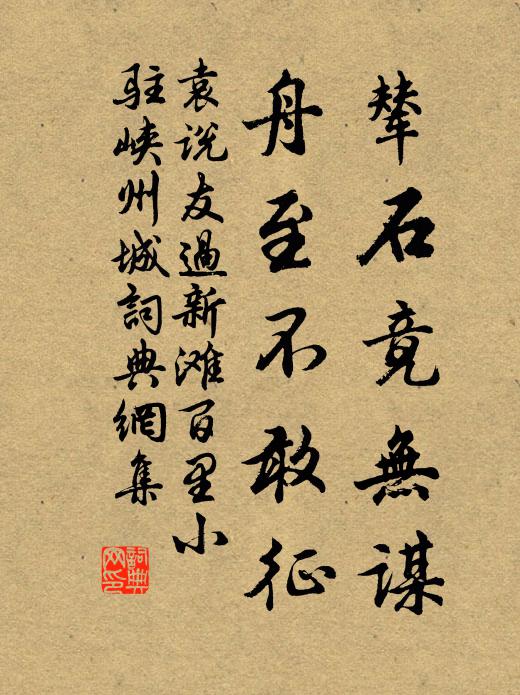 輂石竟無謀
舟至不敢征
袁说友過新滩百里小
駐峡州城詞典網集
詞典网印